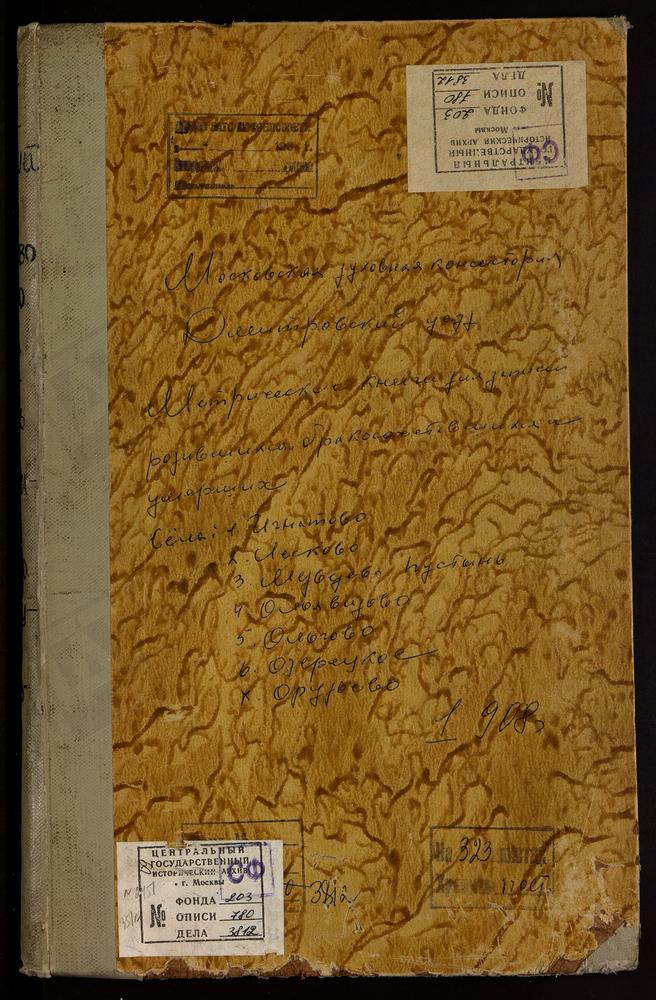 ЦЕНТРАЛЬНЫЙ
ГОСУДАРСТВЕННЫЙ
ИСТОРИЧЕСКИЙ АРХИВ
г. Москвы
СФ
ФОНДА 203
№ ОПИСИ 780
ДЕЛА 3812
Московская духовная консистория
Дмитровский уезд
Метрическая книга для записи
родившихся, бракосочетавшихся и
умерших
Сёла: 1. Игнатово
2. Лисково
3. Медведева пустынь
4. Ольявидово
5. Ольгово
6. Озерецкое
7. Орудьево
1908г
ЦЕНТРАЛЬНЫЙ
ГОСУДАРСТВЕННЫЙ
ИСТОРИЧЕСКИЙ АРХИВ
г. Москвы
СФ
ФОНДА 203
№ ОПИСИ 780
ДЕЛА 3812
На 323 листах